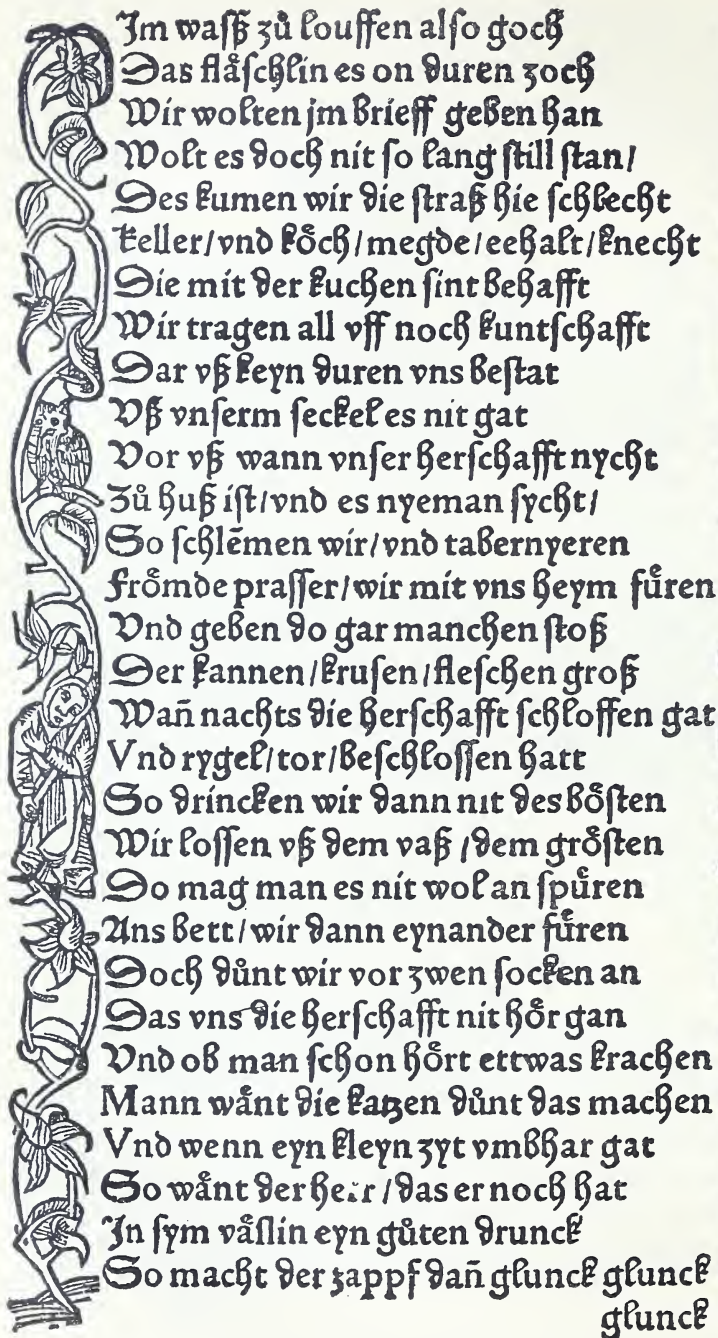 Jm waſß zů louffen alſo goch
Das flåſchlin es on duren zoch
Wir wolten jm brieff geben han
Wolt es doch nit ſo lang ſtill ſtan/
Des kumen wir die ſtraß hie ſchlecht
keller/vnd kôch/megde/eehalt/knecht
Die mit der kuchen ſint behafft
Wir tragen all vff noch kuntſchafft
Dar vß keyn duren vns beſtat
Vß vnſerm ſeckel es nit gat
Vor vß wann vnſer herſchafft nycht
Zů huß iſt/vnd es nyeman ſycht/
So ſchlēmen wir/vnd tabernyeren
frômde praſſer/wir mit vns heym fůren
Vnd geben do gar manchen ſtoß
Der kannen/kruſen/fleſchen groß
Wañ nachts die herſchafft ſchloffen gat
Vnd rygel/tor/beſchloſſen hatt
So drincken wir dann nit des bôſten
Wir loſſen vß dem vaß/dem grôſten
So mag man es nit wol an ſpůren
Ans bett/wir dann eynander fůren
Doch důnt wir vor zwen ſocken an
Das vns die herſchafft nit hôr gan
Vnd ob man ſchon hôrt ettwas krachen
Mann wånt die katzen důnt das machen
Vnd wenn eyn kleyn zyt vmbhar gat
So wånt der herr/das er noch hat
Jn ſym våſlin eyn gůten drunck
So macht der zappf dañ glunck glunck
glunck